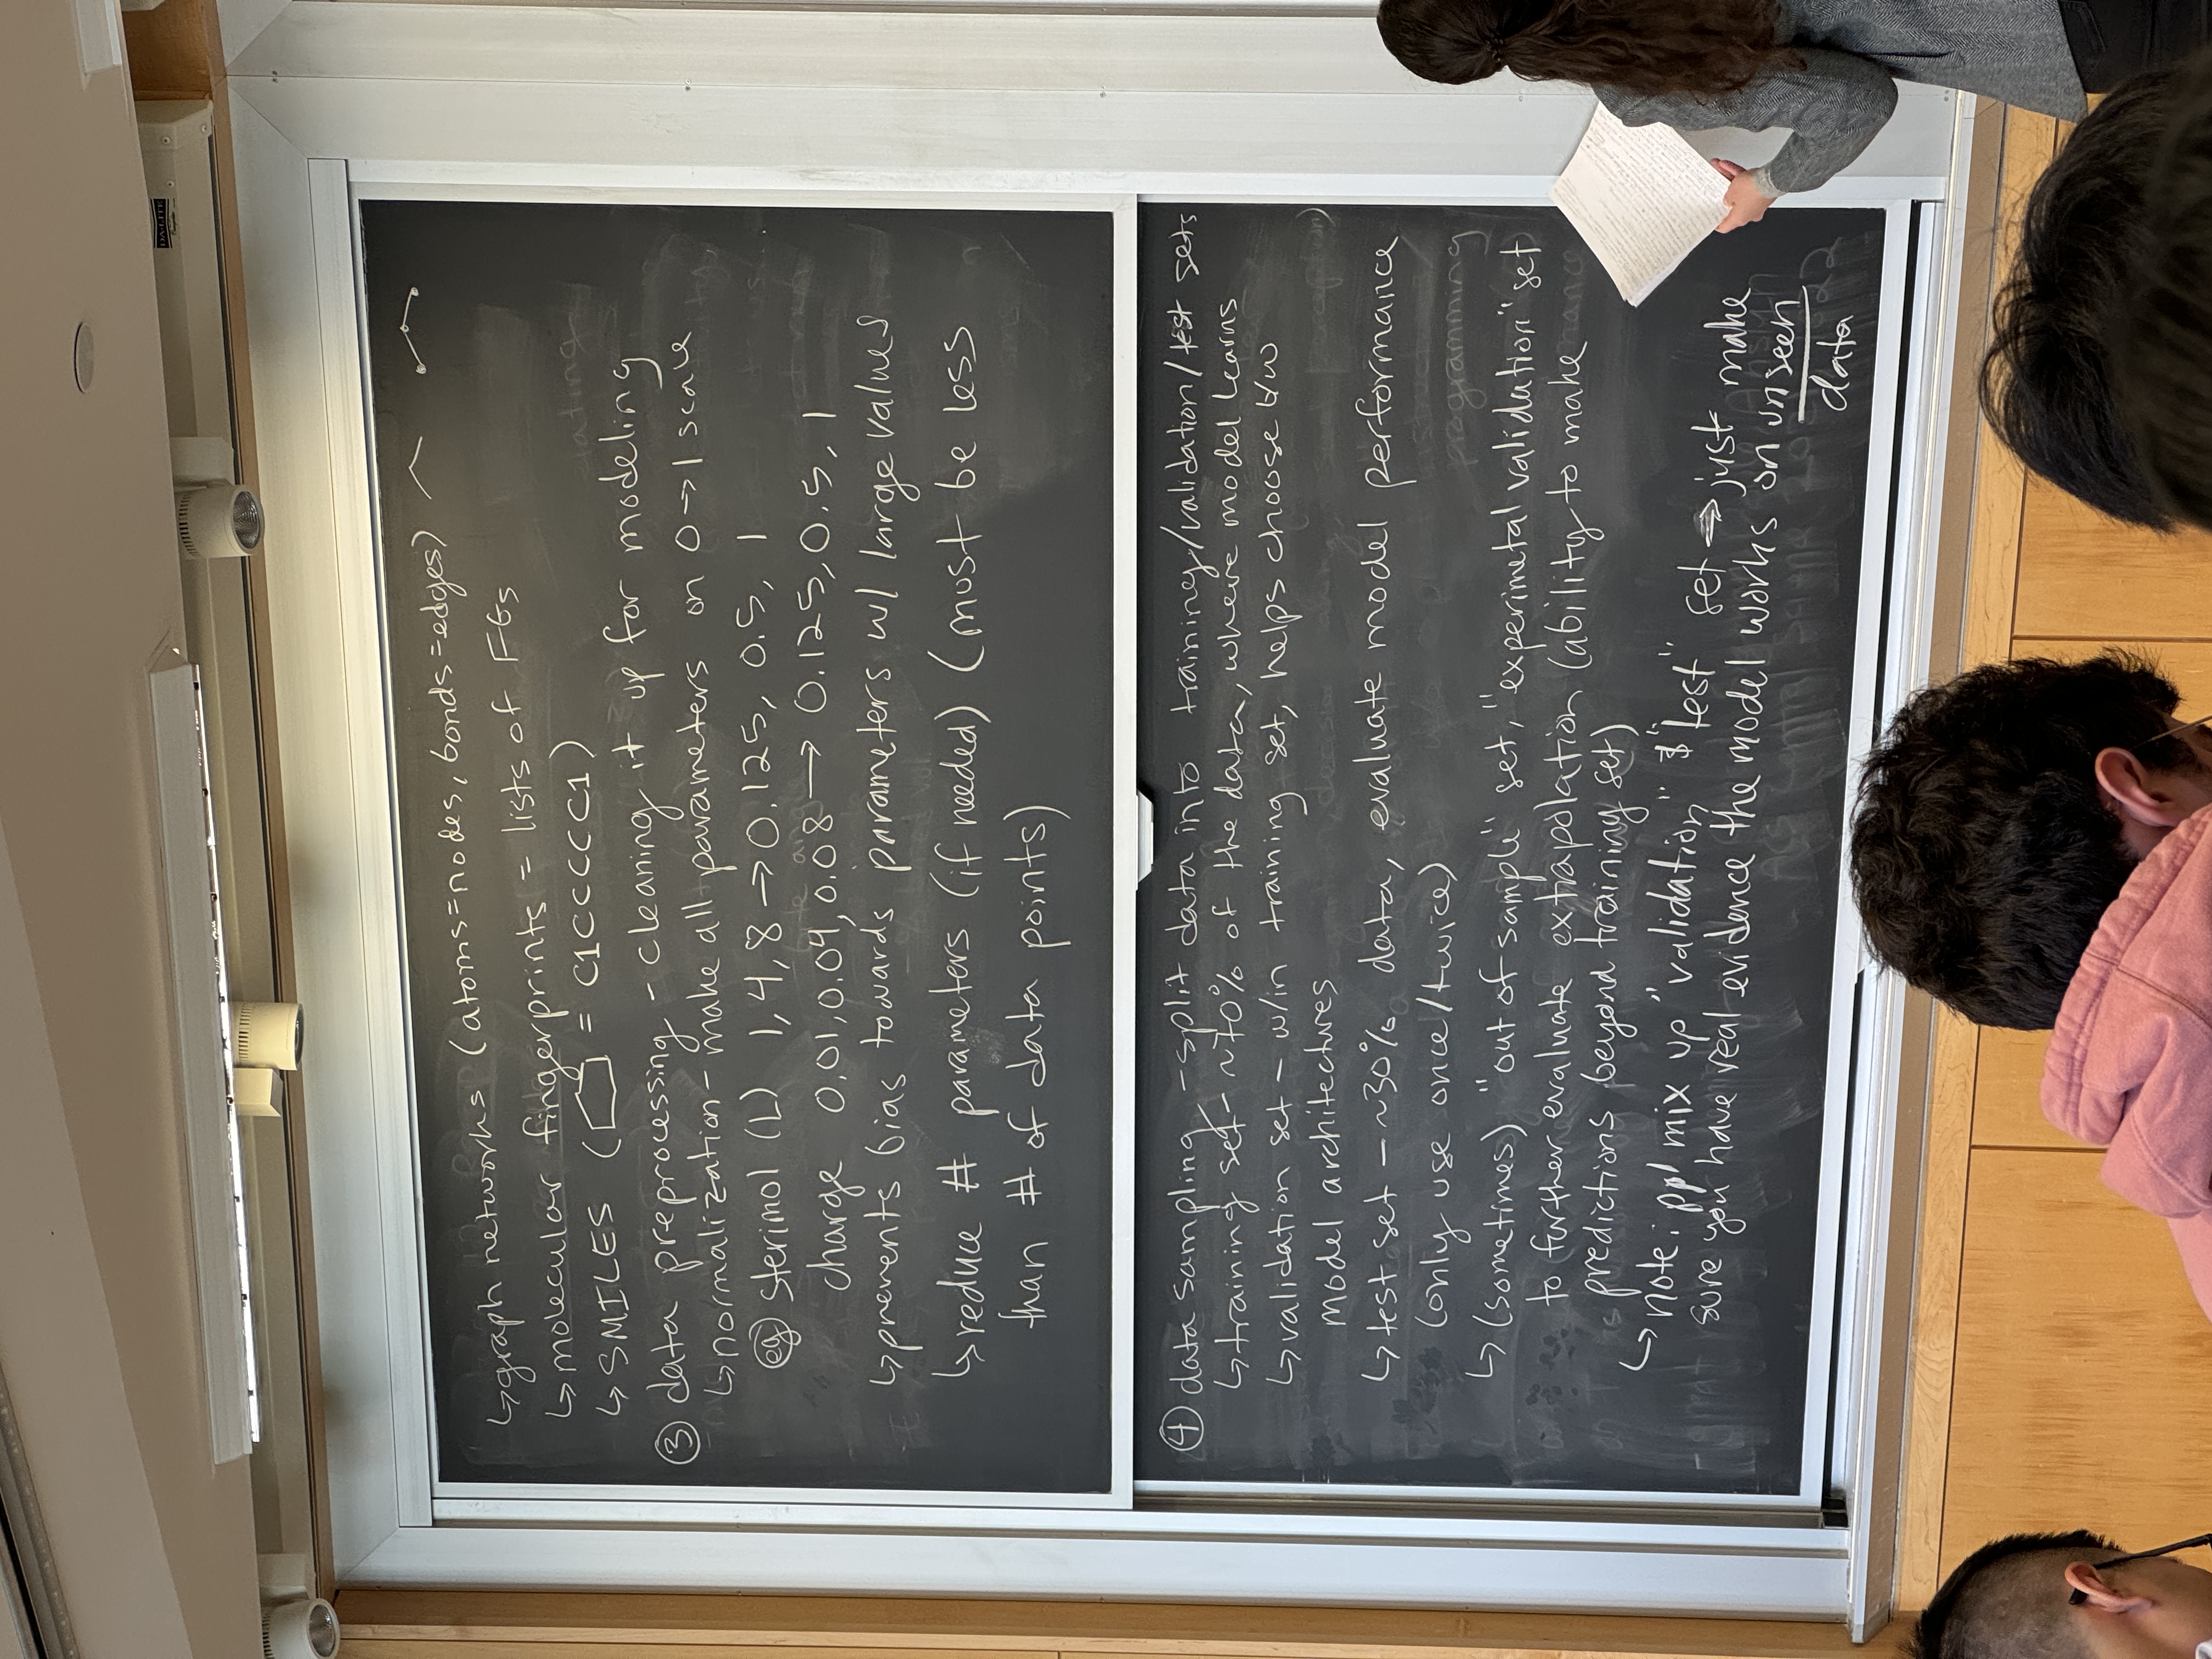 DA-LITE
↳graph networks (atoms=nodes, bonds=edges)
↳molecular fingerprints = lists of FGs
↳SMILES ( = C1CCCCC1)
③ data preprocessing - cleaning it up for modeling
↳normalization - make all parameters on 0→1 scale
eg sterimol (L) 1,4,8 → 0.125, 0.5, 1
charge 0.01, 0.04, 0.08 → 0.125, 0.5, 1
↳prevents bias towards parameters w/ large values
↳reduce # parameters (if needed) (must be less
than # of data points)
④ data sampling - split data into training/validation/test sets
↳training set - ~70% of the data, where model learns
↳validation set - w/in training set, helps choose b/w
model architectures
↳test set - ~30% data, evaluate model performance
(only use once/twice)
↳(sometimes) "out of sample" set, "experimetal validation" set
to further evaluate extrapolation (ability to make
predictions beyond training set)
↳note: ppl mix up "validation" & "test" set ⇒ just make
sure you have real evidence the model works on unseen
data